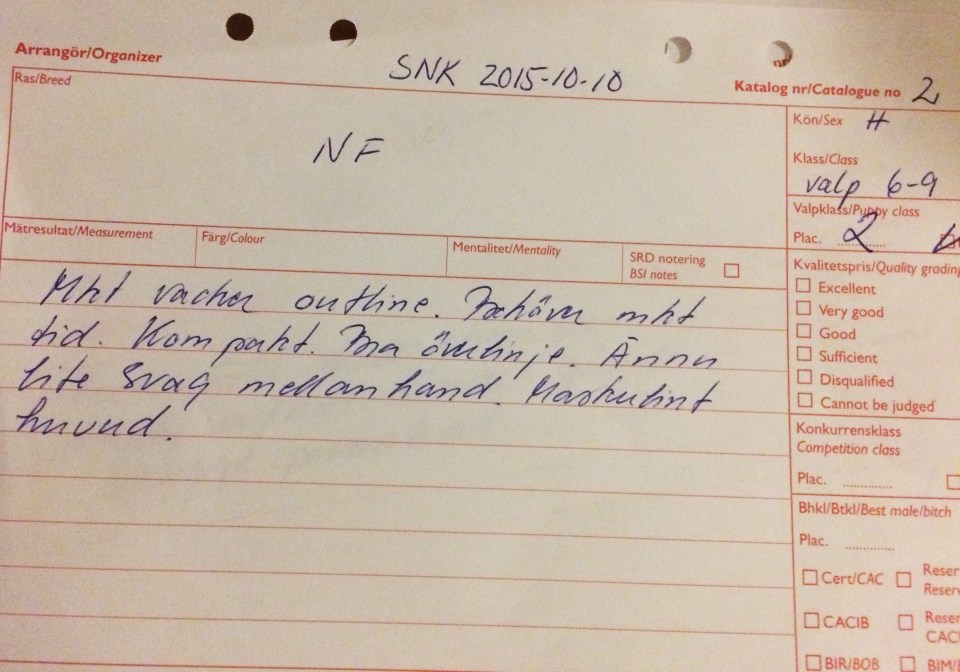 Arrangör/Organizer
SNK 2015-10-10
Katalog nr/Catalogue no 2
Ras/Breed
NF
Kön/Sex H
Klass/Class
valp 6-9
Valpklass/Puppy class
Plac. 2
Mätresultat/Measurement
Färg/Colour
Mentalitet/Mentality
SRD notering
BSI notes
Mkt vacker outline. Behöver mkt
tid. Kompakt. Bra överlinje. Ännu
lite svag mellanhand. Maskulint
huvud.
Kvalitetspris/Quality grading
Excellent
Very good
Good
Sufficient
Disqualified
Cannot be judged
Konkurrensklass
Competition class
Plac.
Bhkl/Btkl/Best male/bitch
Plac.
Cert/CAC
Reser
Reserv
CACIB
Reser
CACI
BIR/BOB
BIM/